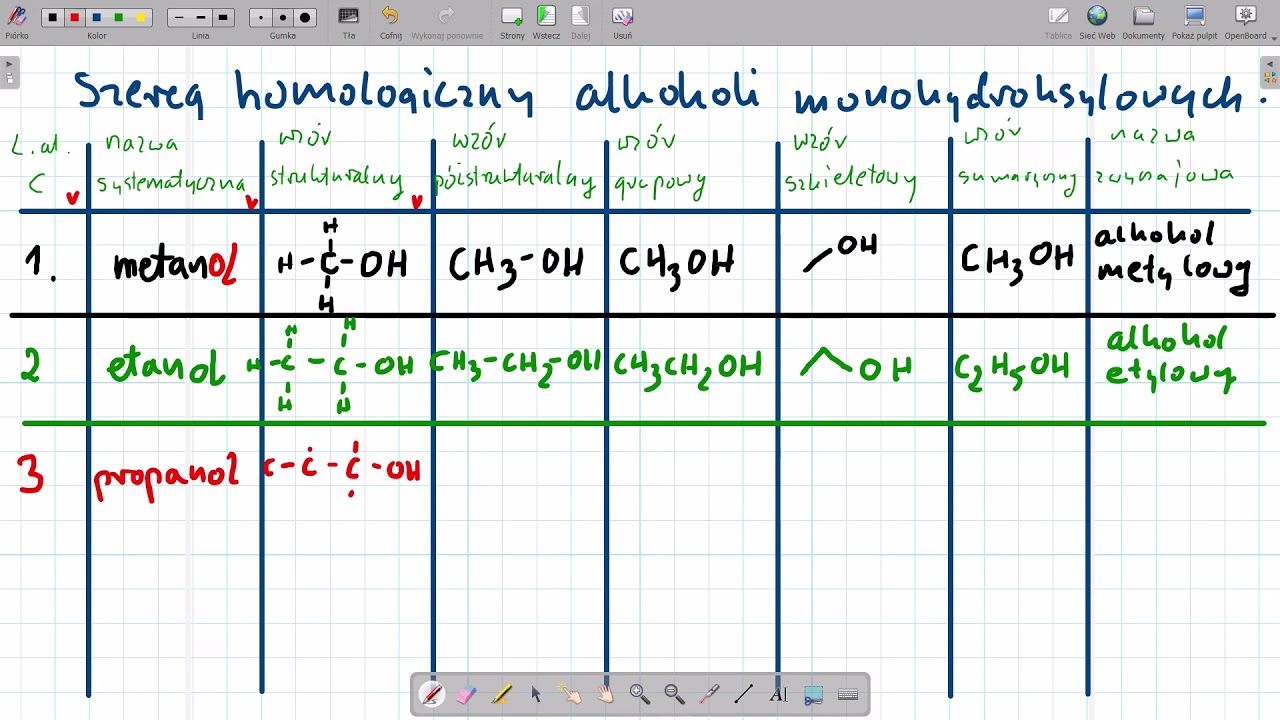 Piórko
Kolor
Linia
Gumka
Tła
Cofnij
Wykonaj ponownie
Strony
Wstecz
Dalej
Usuń
Tablica
Sieć Web
Dokumenty
Pokaż pulpit
OpenBoard
Szereg homologiczny alkoholi monohydroksylowych.
L. at. C
nazwa systematyczna
wzór strukturalny
wzór półstrukturalny
wzór grupowy
wzór szkieletowy
wzór sumaryczny
nazwa zwyczajowa
H
1. metanol H-C-OH CH3-OH CH3OH OH CH3OH alkohol metylowy
H
H H
2 etanol H-C-C-OH CH3-CH2-OH CH3CH2OH OH C2H5OH alkohol etylowy
H H
3 propanol C-C-C-OH
AI